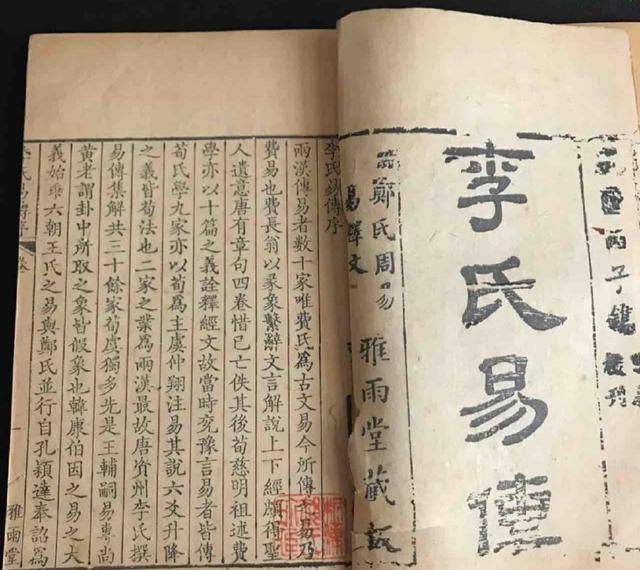 丙子鐫
李氏易傳
鄭氏周易
易釋文
雅雨堂藏板
李氏易傳序
兩漢傳易者數十家唯費氏爲古文易今所傳之易乃
費易也費長翁以彖象繫辭文言解說上下經頗得聖
人遺意唐有章句四卷惜已亡佚其後荀慈明祖述費
學亦以十篇之義詮釋經文故當時兗豫言易者皆傳
荀氏學九家亦以荀爲主虞仲翔注易其說六爻升降
之義皆荀法也二家之業爲兩漢最故唐資州李氏撰
易傳集解共三十餘家荀虞獨多先是王輔嗣易專尚
黃老謂卦中所取之象皆假象也韓康伯因之易之大
義始乖六朝王氏之易與鄭氏並行自孔穎達奉詔爲
李氏易傳序
一
雅雨堂